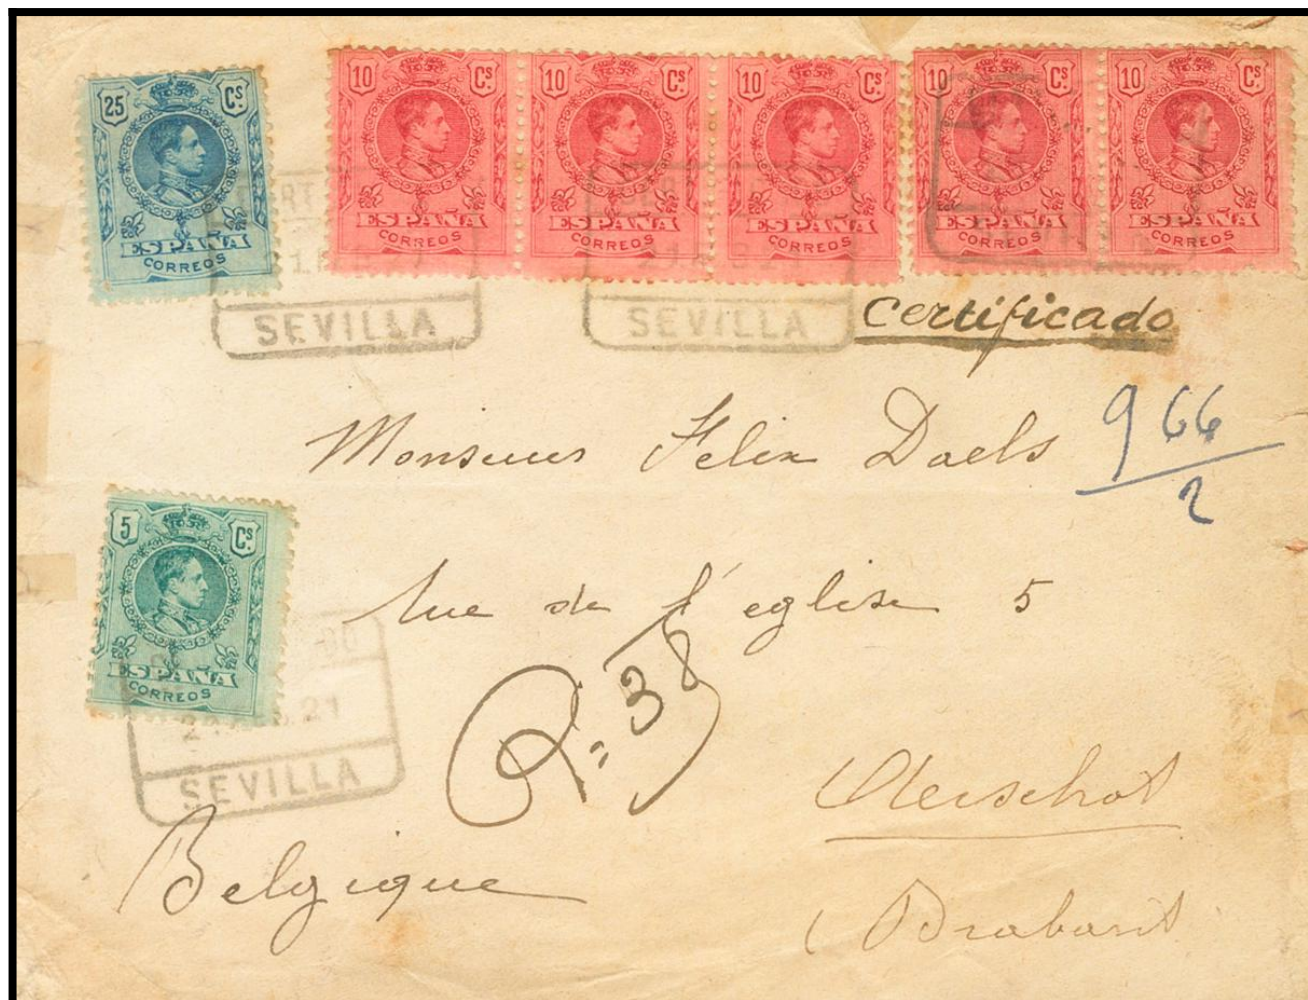 25 Cs
ESPAÑA
CORREOS
10 Cs.
ESPAÑA
CORREOS
10 Cs.
ESPAÑA
CORREOS
10 Cs.
ESPAÑA
CORREOS
10 Cs.
ESPAÑA
CORREOS
10 Cs.
ESPAÑA
CORREOS
SEVILLA
SEVILLA
Certificado
Monsieur Felix Daels
966
2
5 Cs.
ESPAÑA
CORREOS
21
SEVILLA
Rue de l'eglise 5
R= 38
Aerschot
Belgique
(Brabant